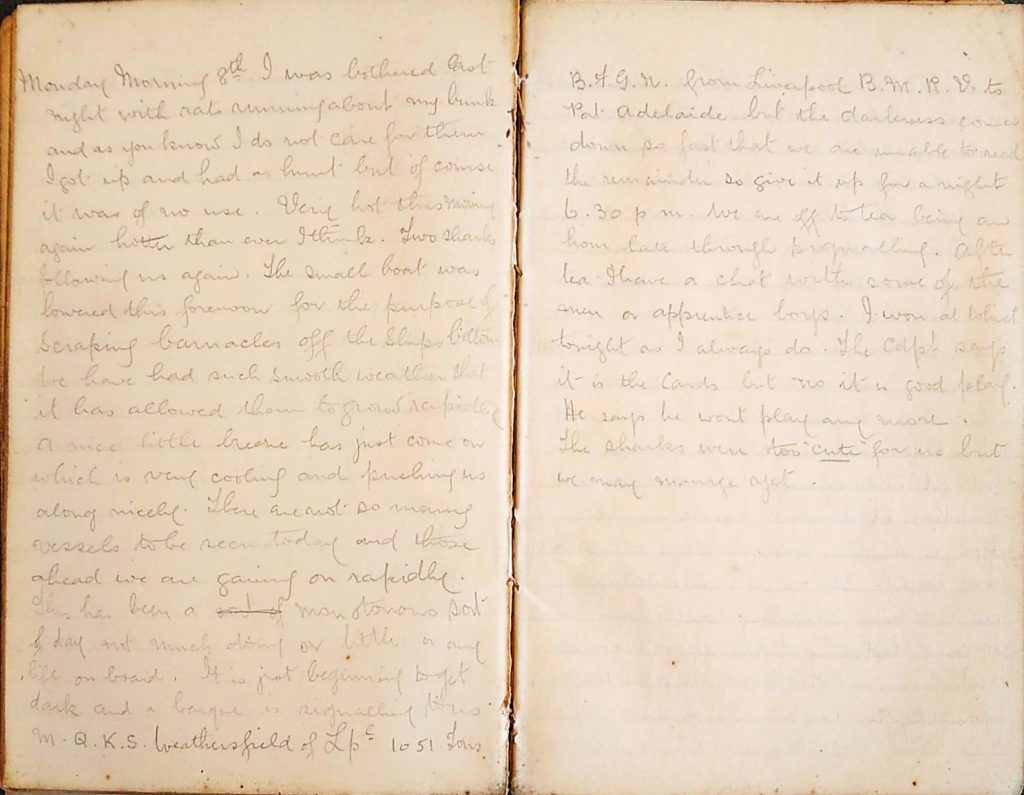 Monday Morning 8th I was bothered last
night with rats running about my bunk
and as you know I do not care for them
I got up and had a hunt but of course
it was of no use. Very hot this morning
again hotter than ever I think. Two sharks
following us again. The small boat was
lowered this forenoon for the purpose of
scraping barnacles off the ships bottom
we have had such smooth weather that
it has allowed them to grow rapidly
A nice little breeze has just come on
which is very cooling and pushing us
along nicely. There are not so many
vessels to be seen today and those
ahead we are gaining on rapidly.
This has been a sort of monotonous sort
of day not much doing or little or any
life on board. It is just beginning to get
dark and a barque is signalling to us
M.Q.K.S. Weathersfield of Lpl 1051 Tons
B.F.G.N. from Liverpool B.M.R.V. to
Port Adelaide but the darkness comes
down so fast that we are unable to read
the remainder so give it up for a night
6.30 p.m. We are off to tea being an
hour late through signalling. After
tea I have a chat with some of the
men or apprentice boys. I won at
tonight as I always do. The Capt says
it is the Cards but no it is good play.
He says he wont play any more.
The sharks were too "cute" for us but
we may manage yet.